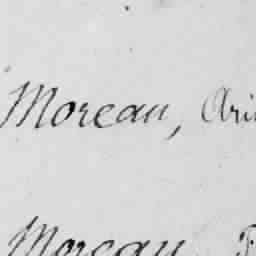 Moreau, Ari
Moreau F